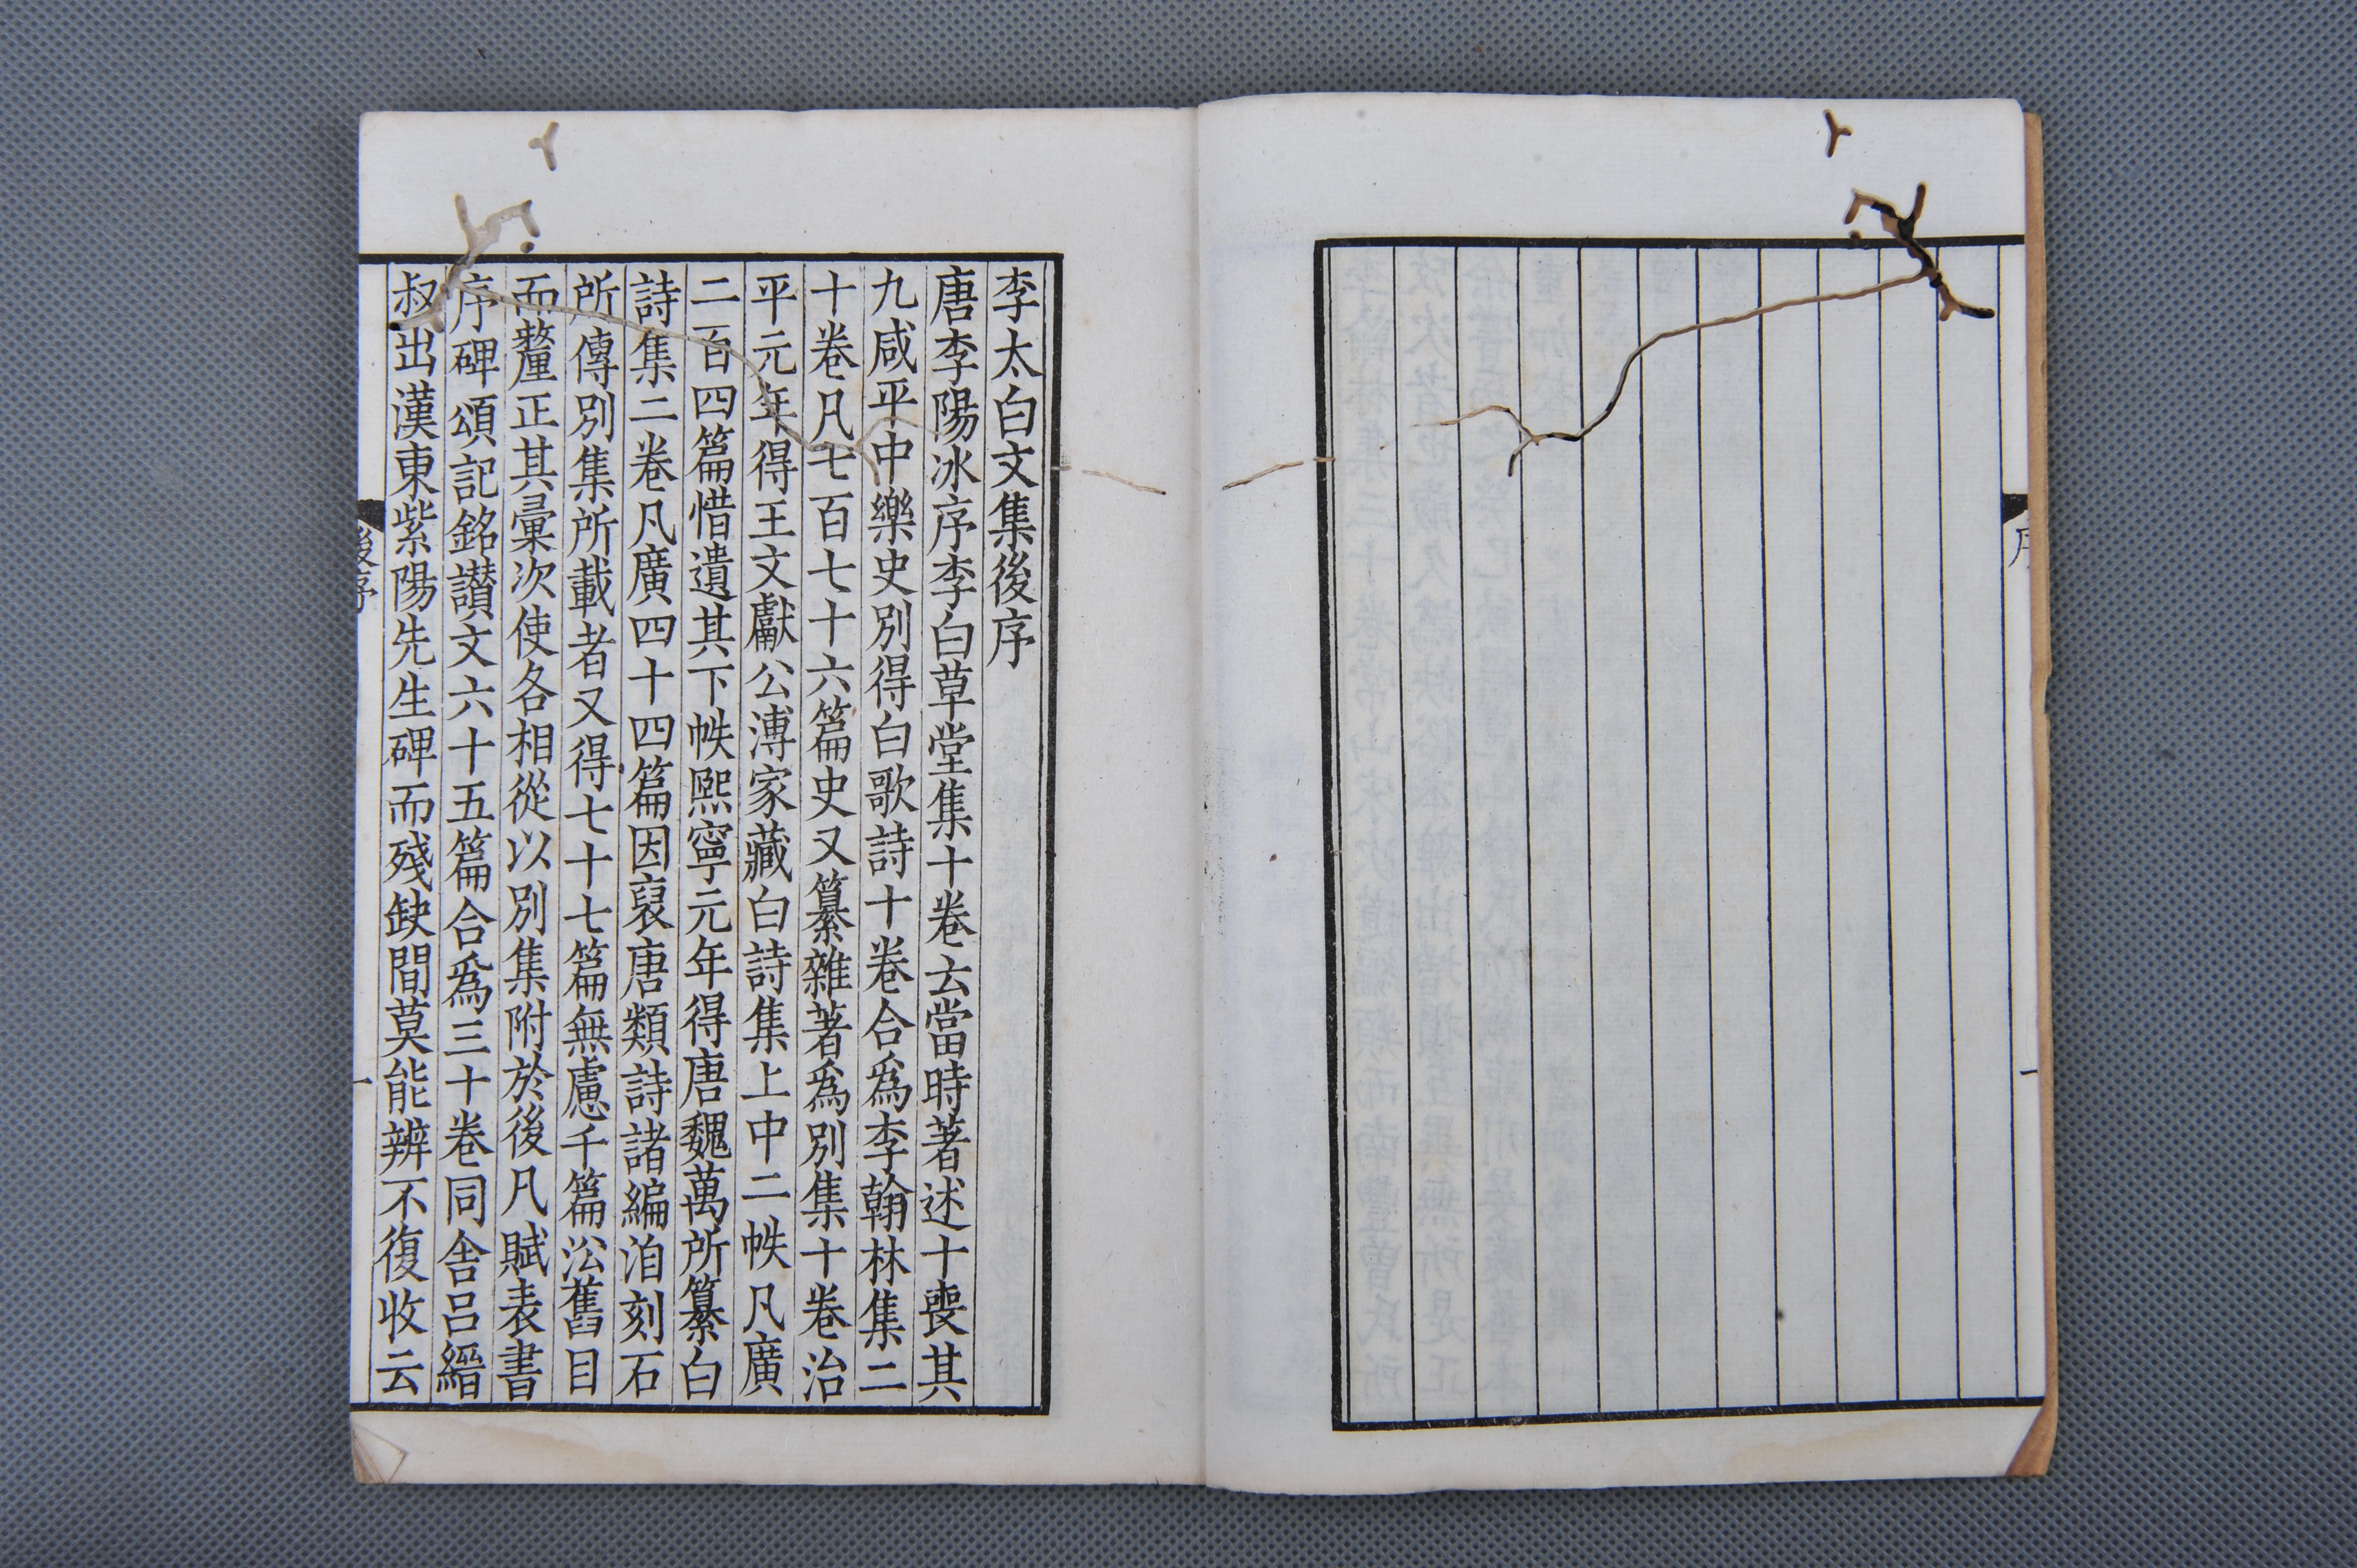 李太白文集後序
唐李陽冰序李白草堂集十卷云當時著述十喪其
九咸平中樂史別得白歌詩十卷合爲李翰林集二
十卷凡七百七十六篇史又纂雜著爲別集十卷治
平元年得王文獻公溥家藏白詩集上中二帙凡廣
二百四篇惜遺其下帙熙寧元年得唐魏萬所纂白
詩集二卷凡廣四十四篇因裒唐類詩諸編洎刻石
所傳別集所載者又得七十七篇無慮千篇㳂舊目
而釐正其彙次使各相從以別集附於後凡賦表書
序碑頌記銘讃文六十五篇合爲三十卷同舍呂縉
叔出漢東紫陽先生碑而殘缺間莫能辨不復收云
後序
一
序
一